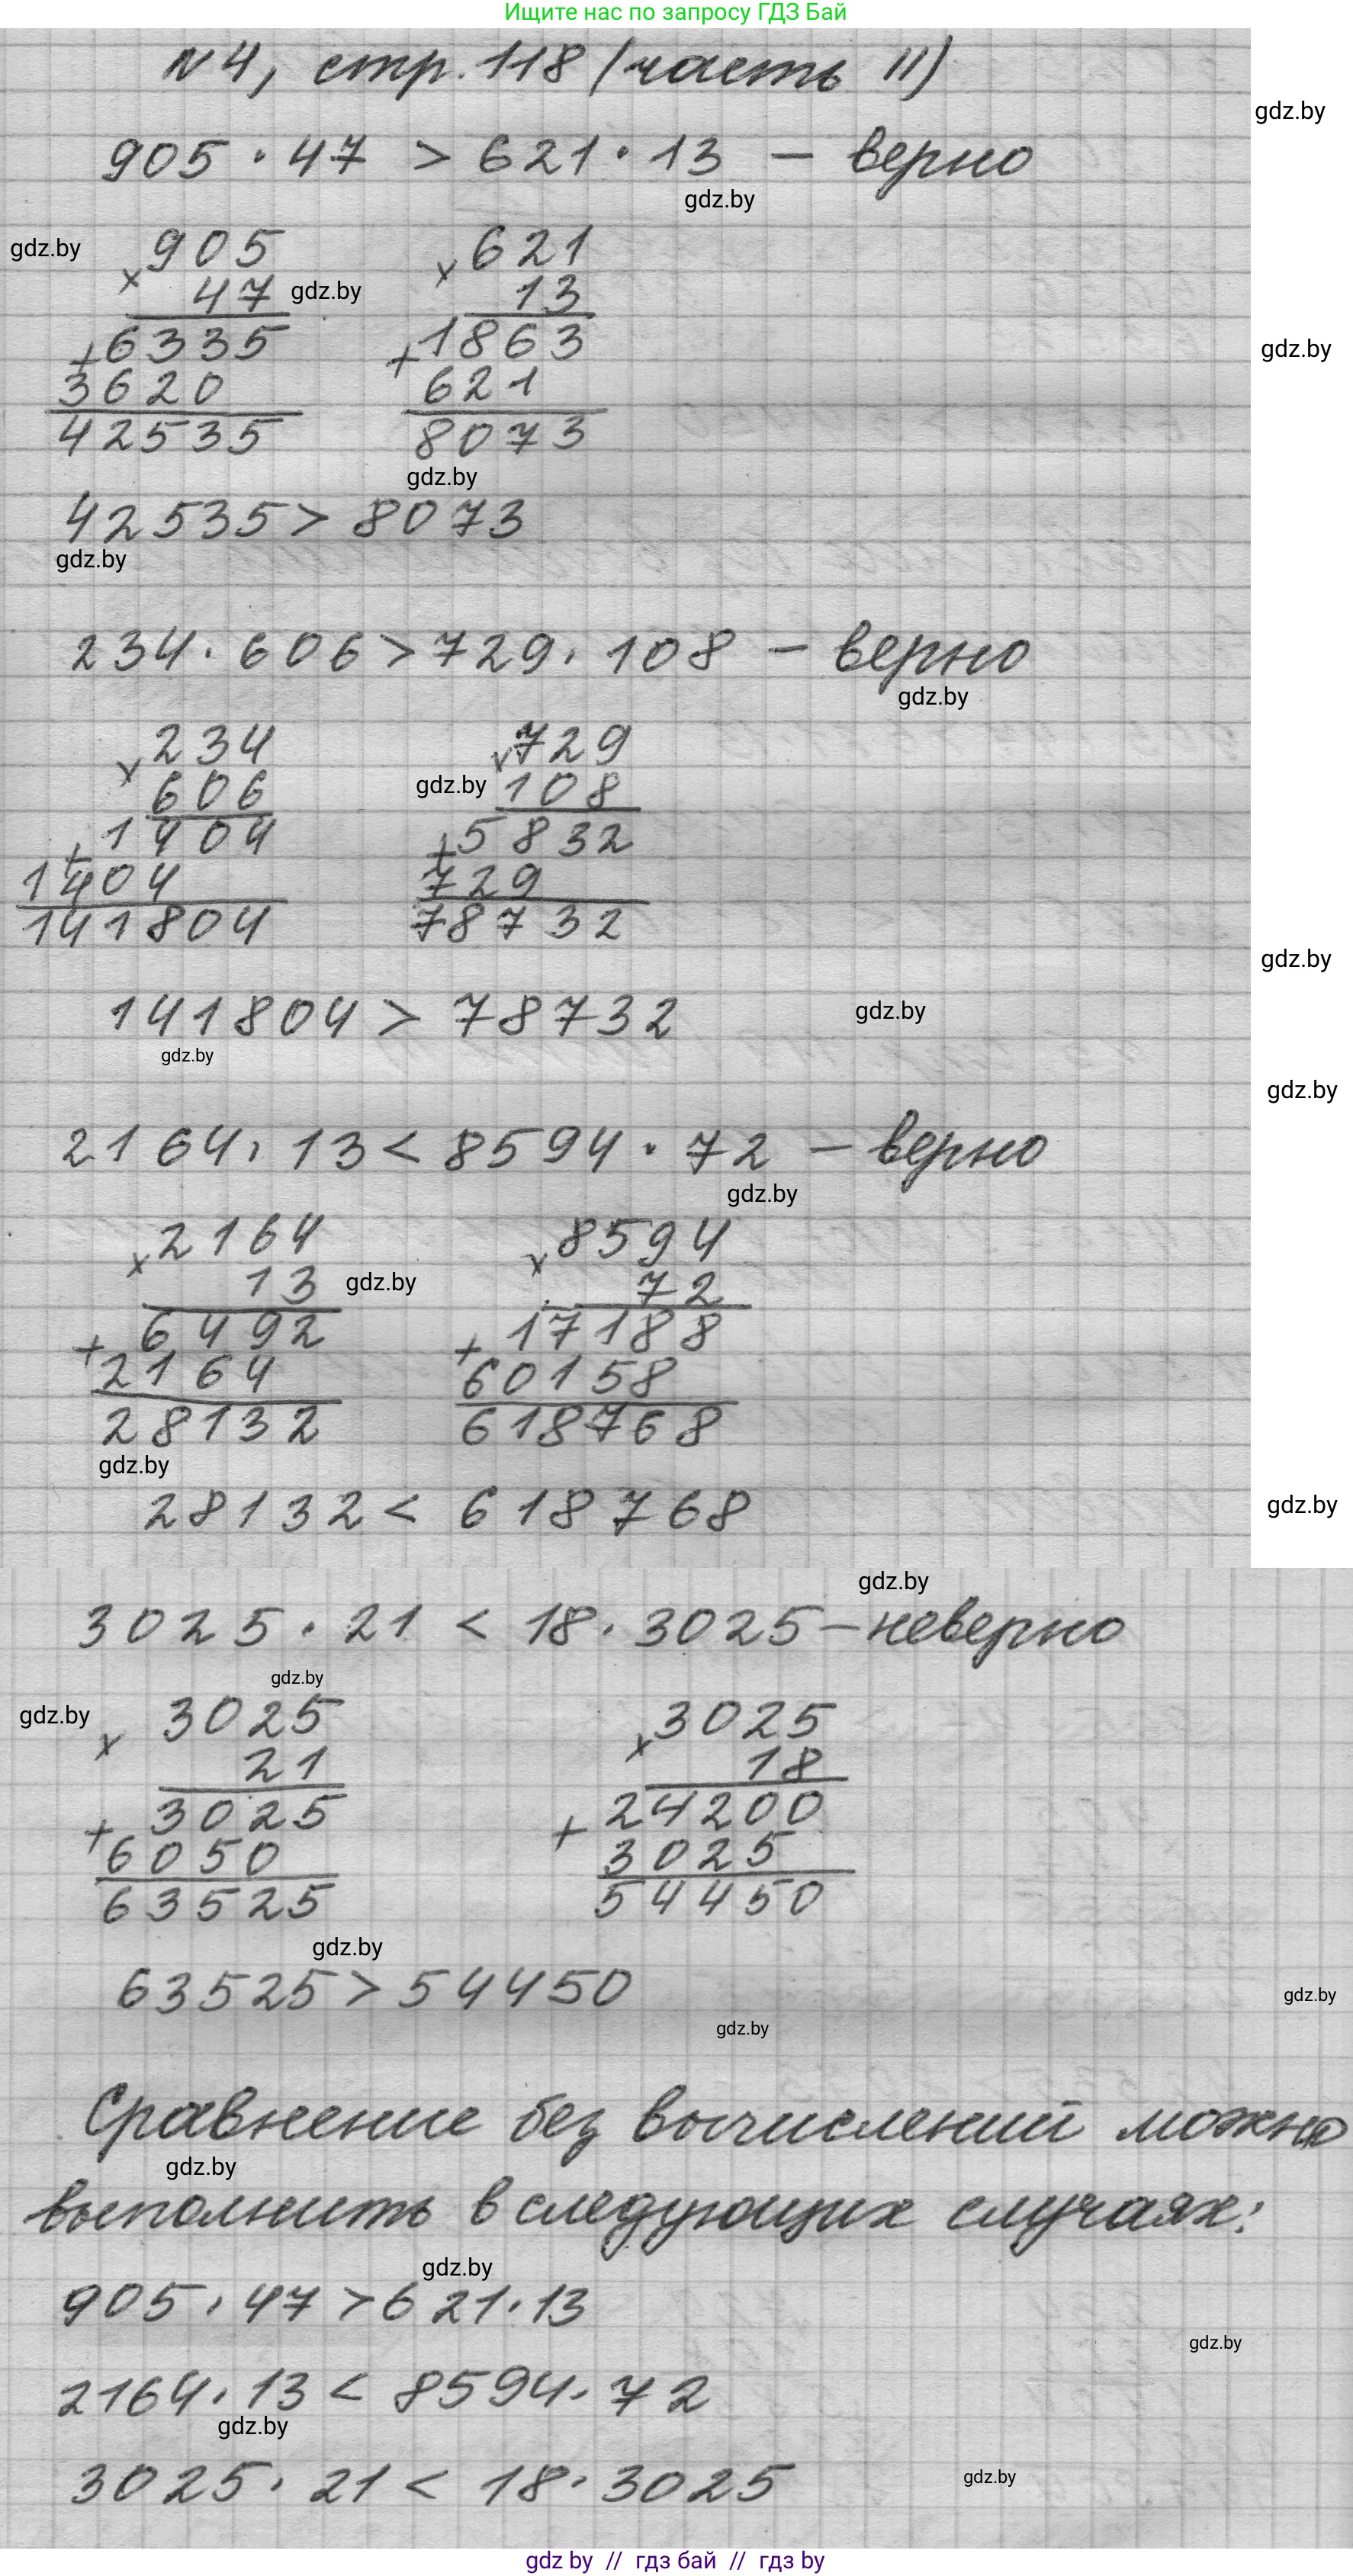 Ищите нас по запросу ГДЗ Бай
N4, стр. 118 (часть II)
gdz.by
905 · 47 > 621 · 13 – верно
gdz.by
gdz.by
905 621
× ×
47 gdz.by 13
6335 1863
+ + gdz.by
3620 621
42535 8073
gdz.by
42535 > 8073
gdz.by
234 · 606 > 729 · 108 – верно
gdz.by
234 729
× ×
606 gdz.by 108
1404 5832
+ +
1404 729
141804 78732
gdz.by
141804 > 78732 gdz.by
gdz.by
gdz.by
2164 · 13 < 8594 · 72 – верно
gdz.by
2164 8594
× ×
13 gdz.by 72
6492 17188
+ +
2164 60158
28132 618768
gdz.by
28132 < 618768 gdz.by
gdz.by
3025 · 21 < 18 · 3025 – неверно
gdz.by
gdz.by 3025 3025
× ×
21 18
3025 24200
+ +
6050 3025
63525 54450
gdz.by
63525 > 54450 gdz.by
gdz.by
Сравнение без вычислений можно
gdz.by
выполнить в следующих случаях:
gdz.by
905 · 47 > 621 · 13
gdz.by
2164 · 13 < 8594 · 72
gdz.by
3025 · 21 < 18 · 3025 gdz.by
gdz by // гдз бай // гдз by